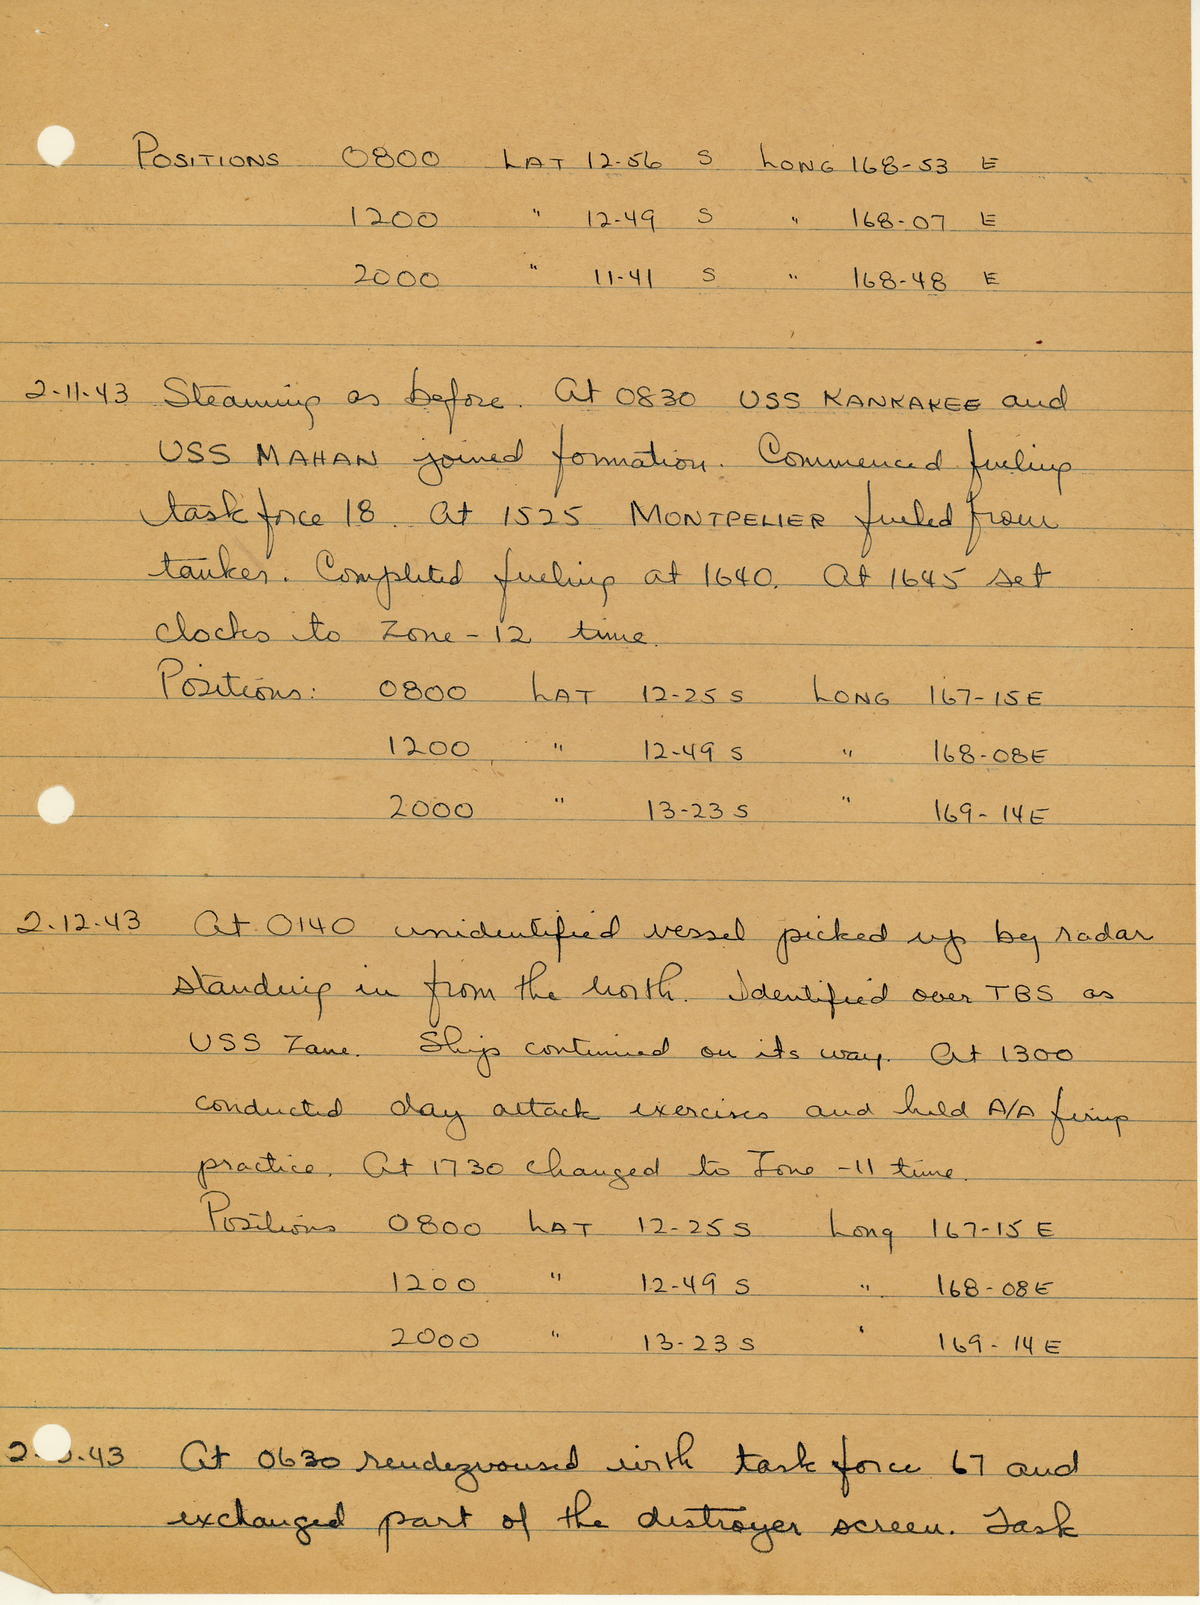 POSITIONS 0800 LAT 12-56 S LONG 168-53 E
1200 " 12-49 S " 168-07 E
2000 " 11-41 S " 168-48 E
2-11-43 Steaming as before. At 0830 USS KANKAKEE and
USS MAHAN joined formation. Commenced fueling
task force 18. At 1525 MONTPELIER fueled from
tanker. Completed fueling at 1640. At 1645 set
clocks to Zone -12 time.
Positions: 0800 LAT 12-25 S LONG 167-15 E
1200 " 12-49 S " 168-08 E
2000 " 13-23 S " 169-14 E
2-12-43 At 0140 unidentified vessel picked up by radar
standing in from the North. Identified over TBS as
USS Zane. Ships continued on its way. At 1300
conducted day attack exercises and held A/A firing
practice. At 1730 changed to Zone -11 time.
Positions 0800 LAT 12-25 S Long 167-15 E
1200 " 12-49 S " 168-08 E
2000 " 13-23 S ' 169-14 E
2- .43 At 0630 rendezvoused with task force 67 and
exchanged part of the destroyer screen. Task